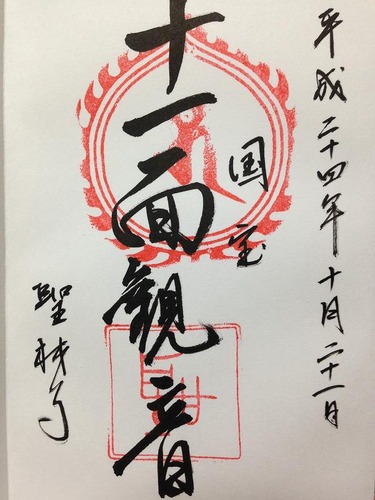 平成二十四年十月二十一日
国宝
十一面観音
聖林寺